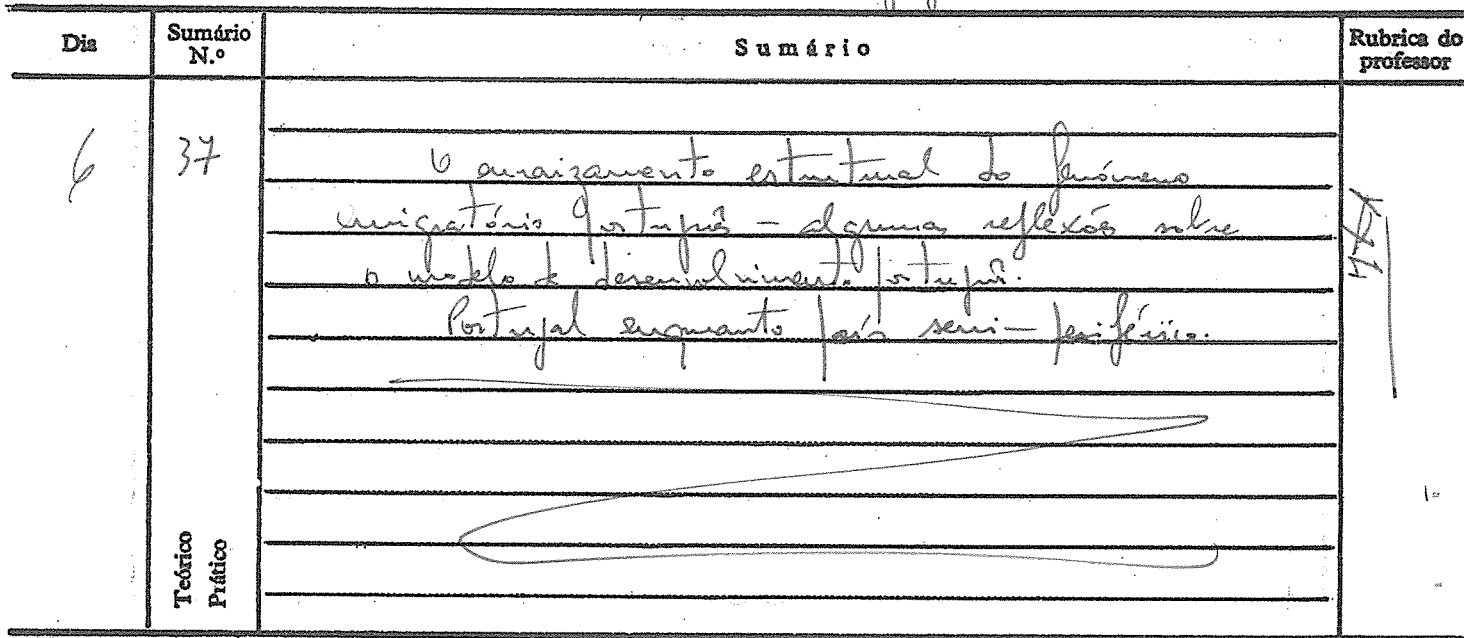 Dia
Sumário N.º
Sumário
Rubrica do professor
6
37
O enraizamento estrutural do fenómeno
emigratório português – algumas reflexões sobre
o modelo de desenvolvimento português.
Portugal enquanto país semi-periférico.
Teórico
Prático